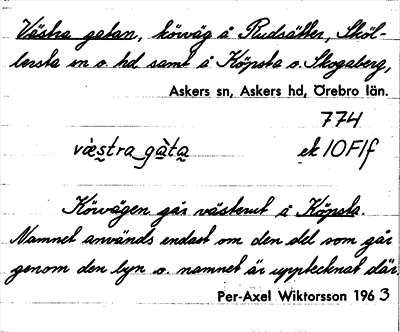 Västra gatan, körväg å Rudsätter, Sköl-
lersta sn o. hd samt å Köpsta o. Skogaberg,
Askers sn, Askers hd, Örebro län.
774
væstra gàta ek 10F1f
Körvägen går västerut å Köpsta.
Namnet används endast om den del som går
genom den byn o. namnet är upptecknat där.
Per-Axel Wiktorsson 1963